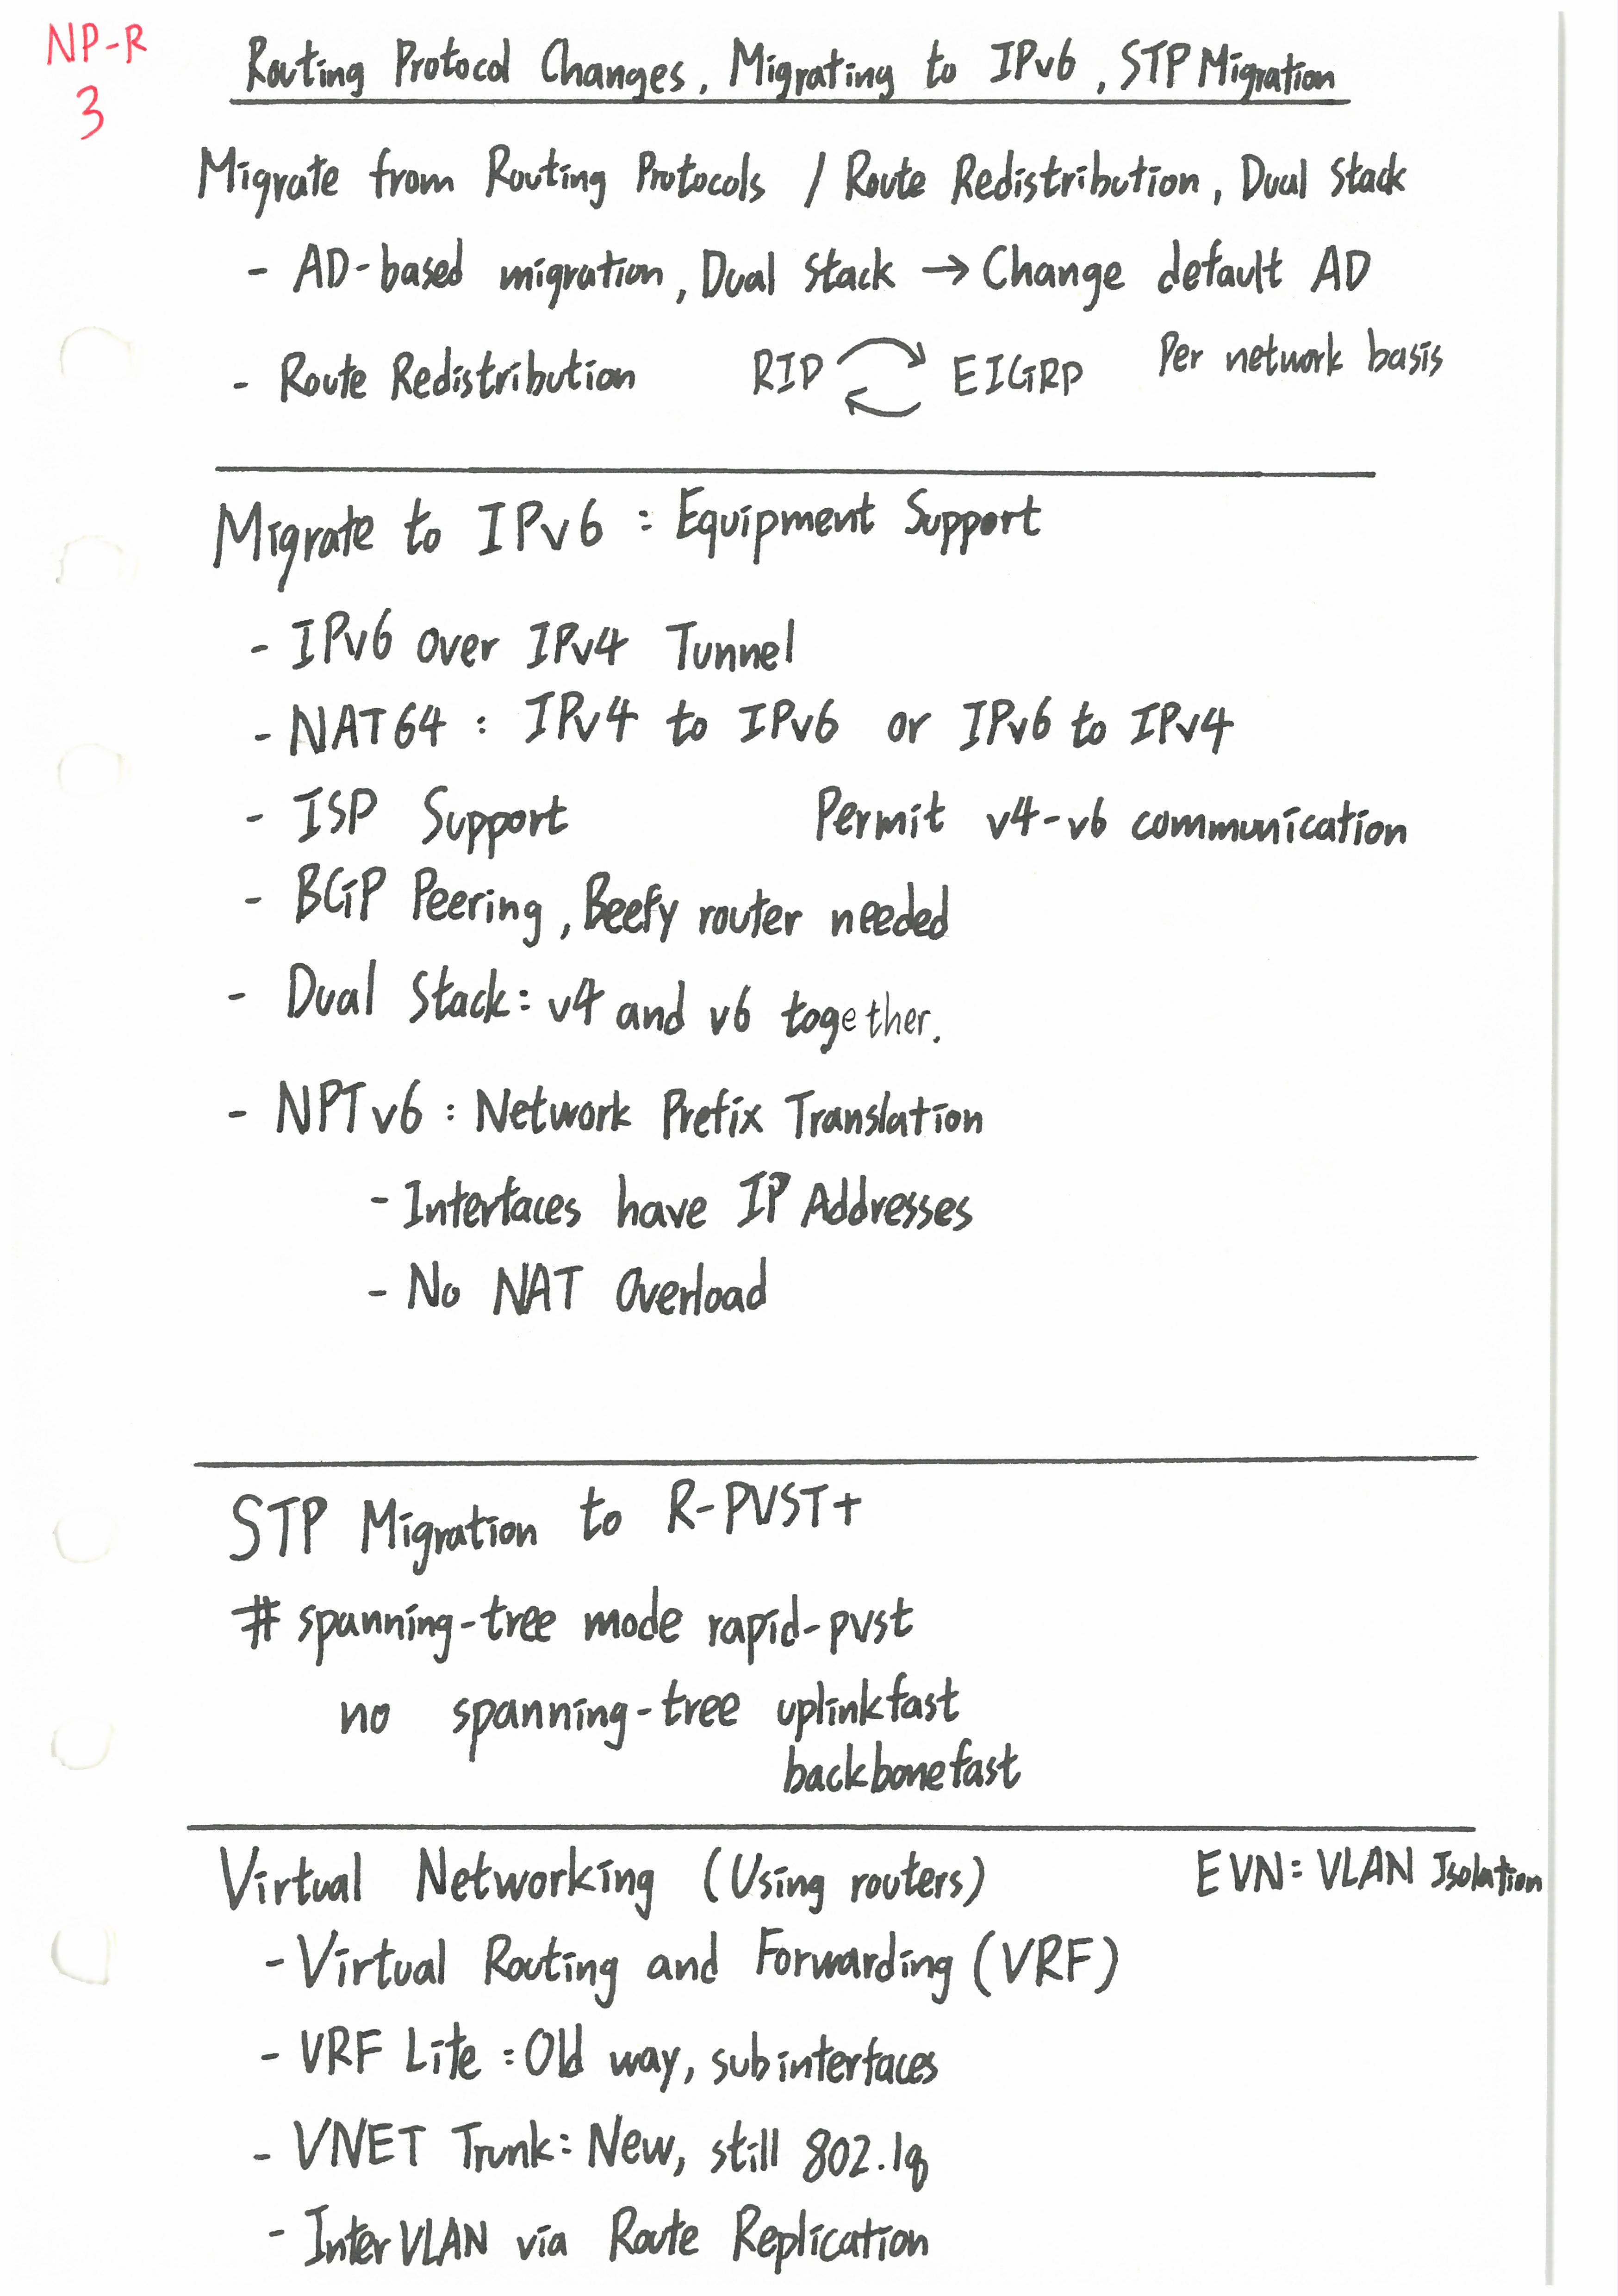 NP-R
3
Routing Protocol Changes, Migrating to IPv6, STP Migration
Migrate from Routing Protocols / Route Redistribution, Dual Stack
- AD-based migration, Dual Stack → Change default AD
- Route Redistribution RIP ⇄ EIGRP Per network basis
Migrate to IPv6 : Equipment Support
- IPv6 over IPv4 Tunnel
- NAT64 : IPv4 to IPv6 or IPv6 to IPv4
- ISP Support Permit v4-v6 communication
- BGP Peering, Beefy router needed
- Dual Stack: v4 and v6 together.
- NPTv6 : Network Prefix Translation
- Interfaces have IP Addresses
- No NAT Overload
STP Migration to R-PVST+
# spanning-tree mode rapid-pvst
no spanning-tree uplinkfast
backbonefast
Virtual Networking (Using routers) EVN: VLAN Isolation
- Virtual Routing and Forwarding (VRF)
- VRF Lite : Old way, subinterfaces
- VNET Trunk: New, still 802.1q
- InterVLAN via Route Replication